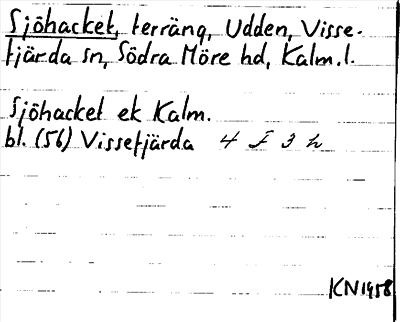 Sjöhacket, terräng, Udden, Visse-
fjärda sn, Södra Möre hd, Kalm. l.
Sjöhacket ek Kalm.
bl. (56) Vissefjärda 4 F 3 h
KN1958